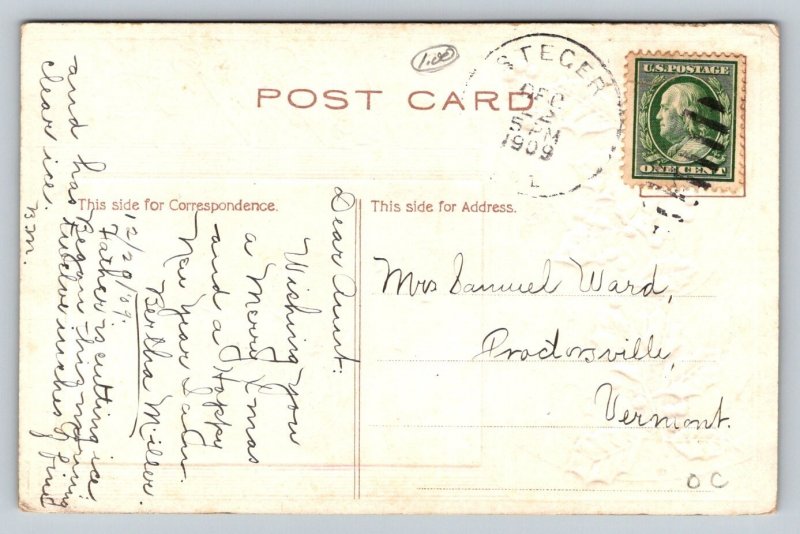 1.00
POST CARD
STEGER
DEC
22
5 PM
1909
U.S. POSTAGE
ONE CENT
This side for Correspondence.
This side for Address.
Mrs Samuel Ward,
Proctorsville,
Vermont.
OC
Dear Aunt.
Wishing you
a Merry Xmas
and a Happy
New Year I am.
Bertha Miller.
12/20/09.
Father is cutting ice
Began this morning
and has twelve inches of fine
clear ice.
B.M.